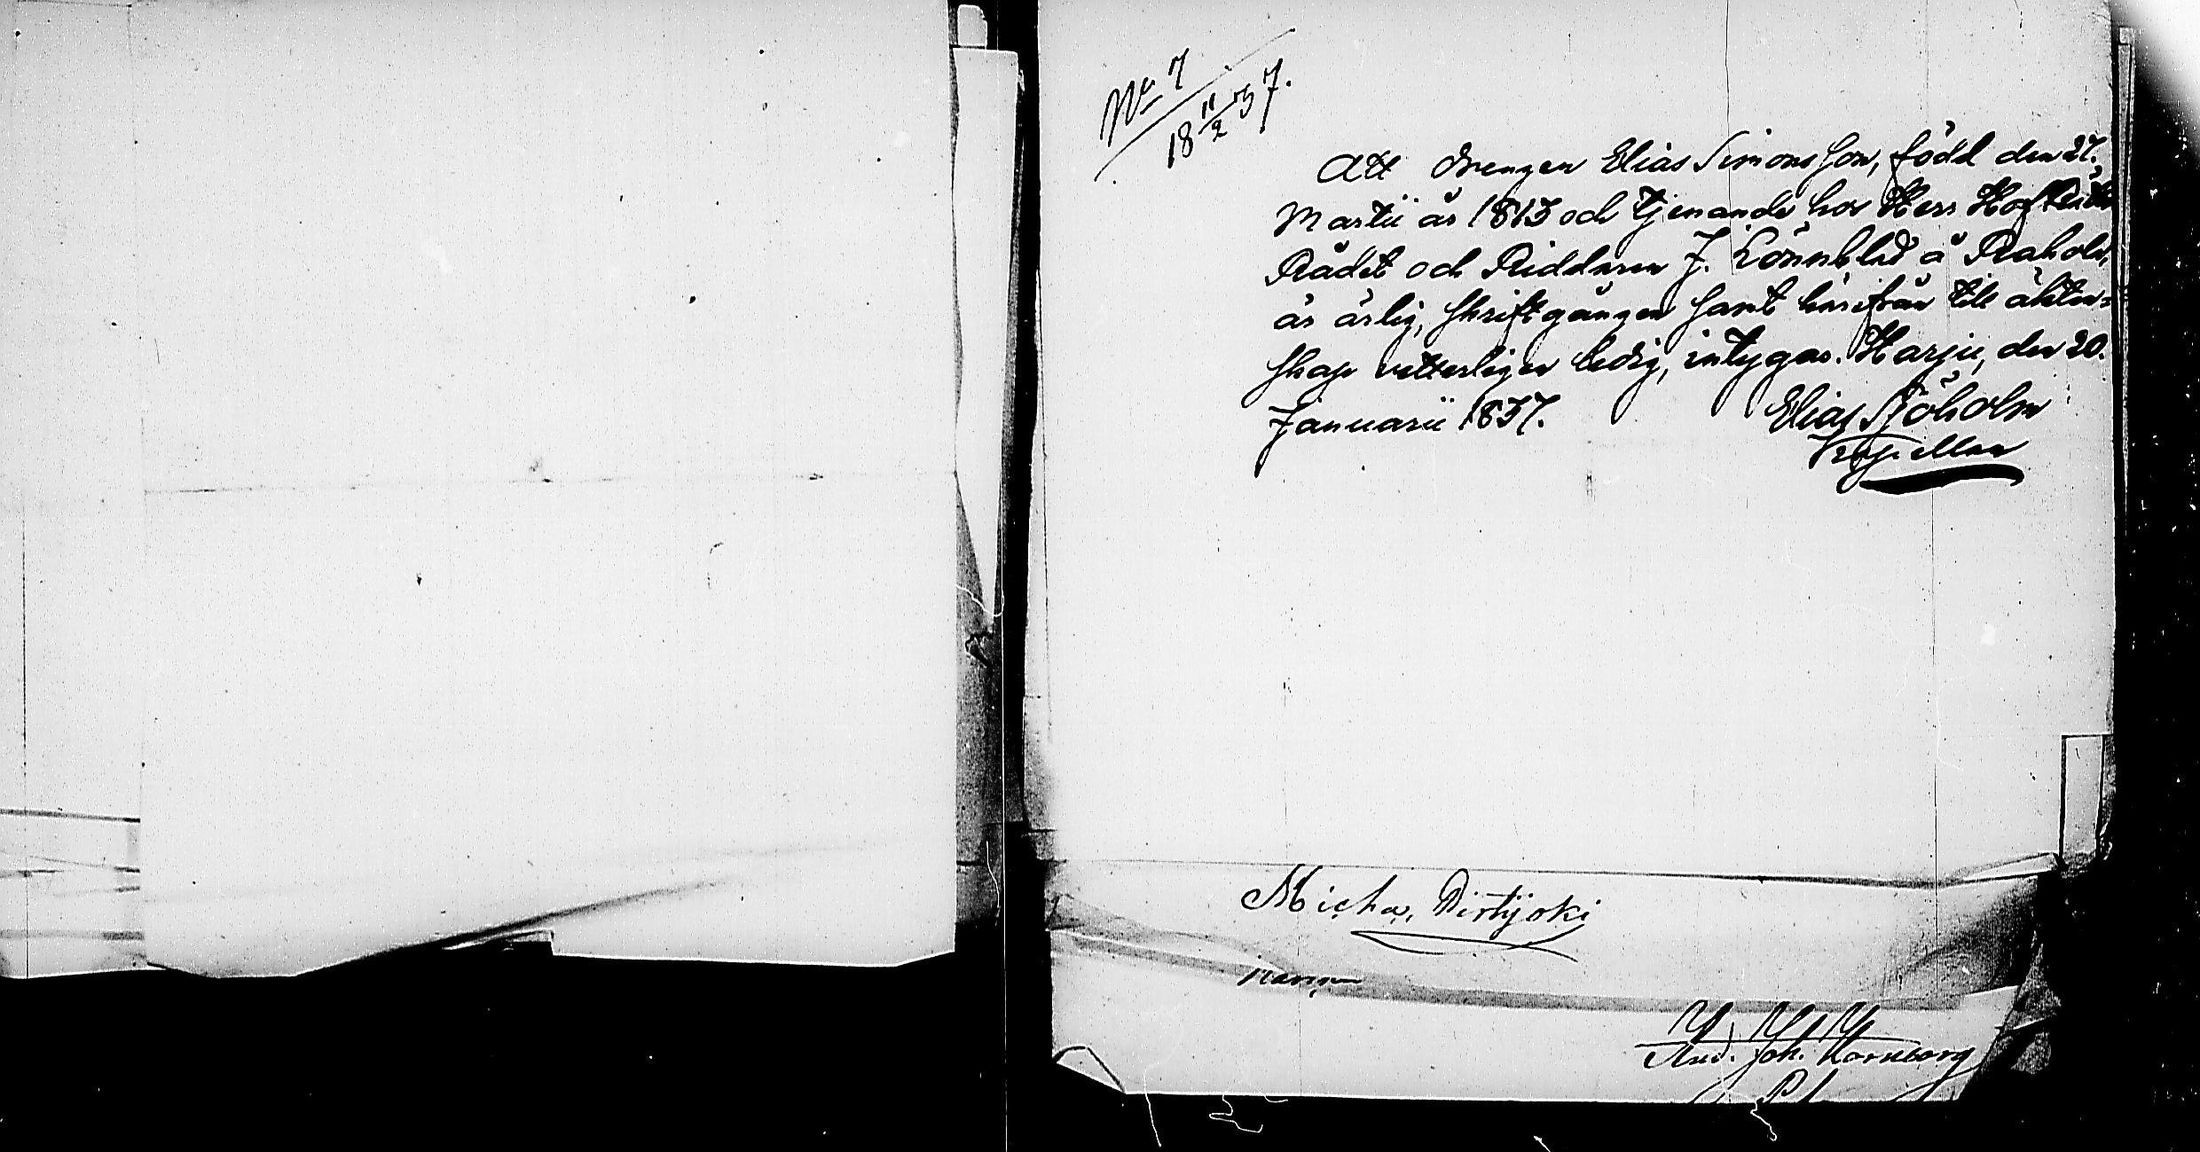 No 7
18 11/2 37.
Att drengen Elias Simonsson, född den 27.
Martii år 1813 och tjenande hos Herr Hof Rätts
Rådet och Riddaren J. Lönnblad å Raholm,
är ärlig, skriftgången samt härifrån till äkten=
skap vetterligen ledig, intygas. Harju, den 20.
Januarii 1837.
Elias Sjöholm
Kapellan
Micha. Pirttijoki
And. Joh. Kornborg